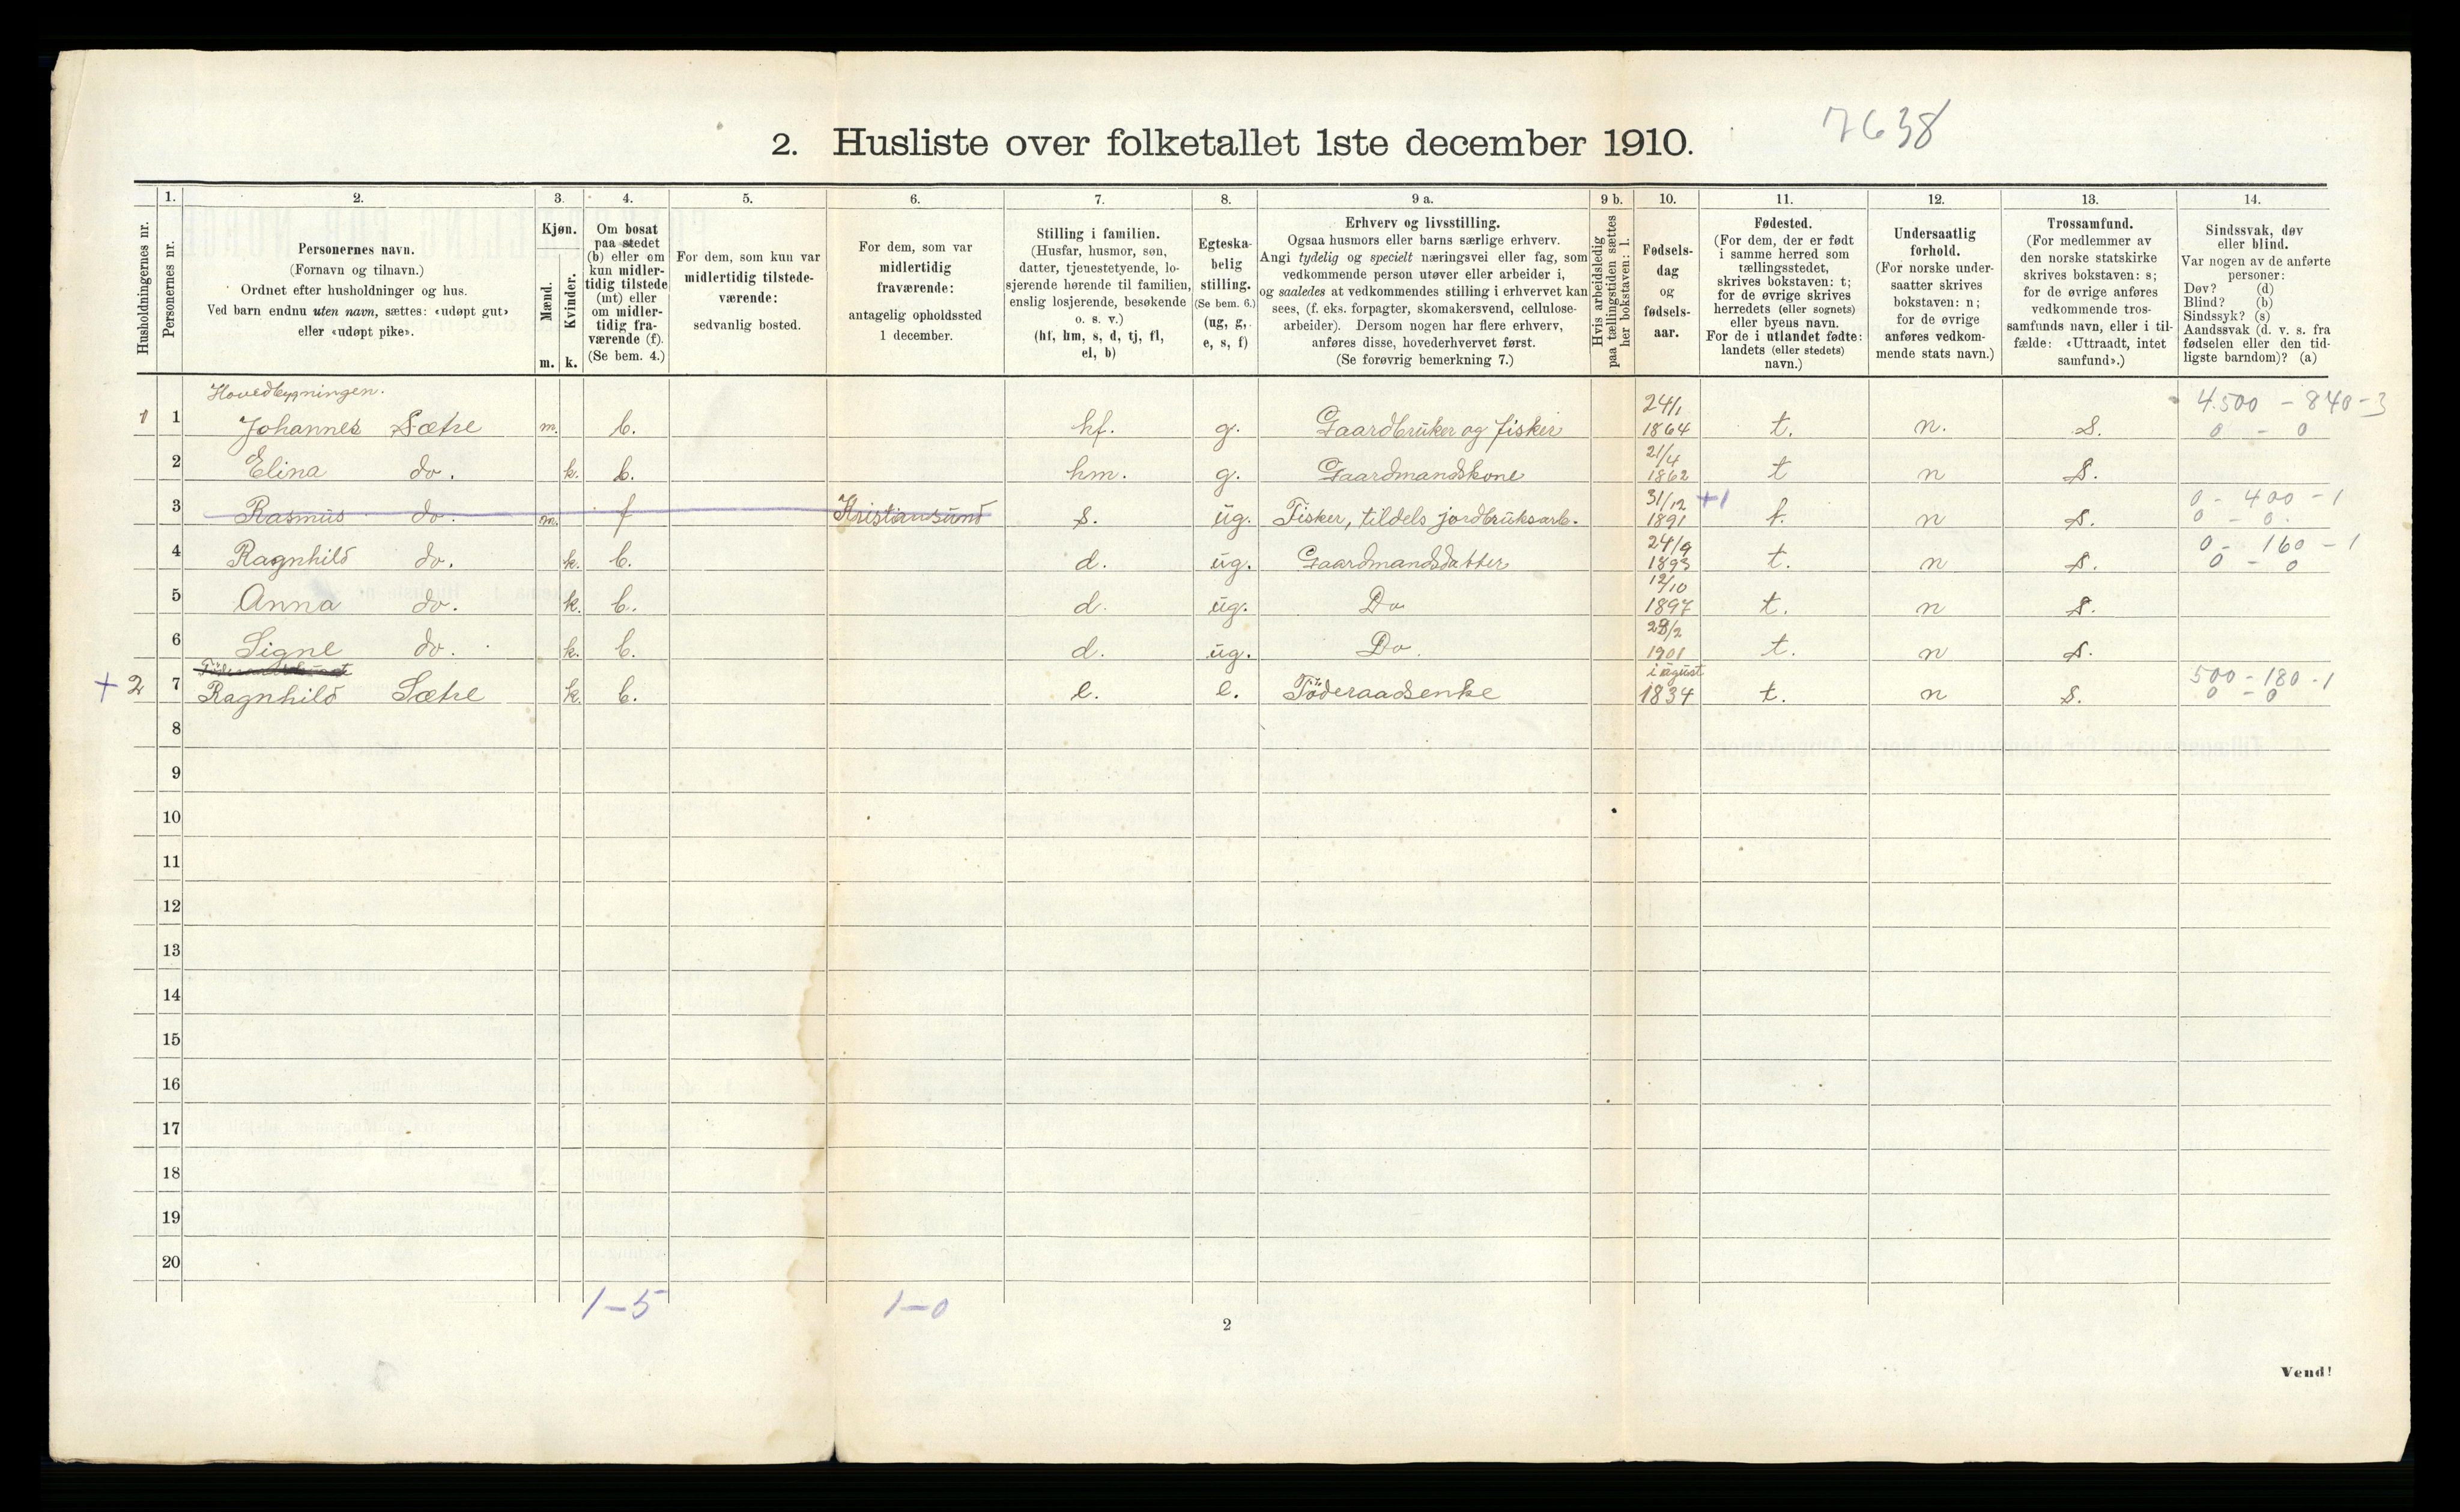 2. Husliste over folketallet 1ste december 1910.
7638
Husholdningernes nr.
1.
Personernes nr.
2.
Personernes navn.
(Fornavn og tilnavn.)
Ordnet efter husholdninger og hus.
Ved barn endnu uten navn, sættes: «udøpt gut»
eller «udøpt pike».
3.
Kjøn.
Mænd.
Kvinder.
m. k.
4.
Om bosat
paa stedet
(b) eller om
kun midler-
tidig tilstede
(mt) eller
om midler-
tidig fra-
værende (f).
(Se bem. 4.)
5.
For dem, som kun var
midlertidig tilstede-
værende:
sedvanlig bosted.
6.
For dem, som var
midlertidig
fraværende:
antagelig opholdssted
1 december.
7.
Stilling i familien.
(Husfar, husmor, søn,
datter, tjenestetyende, lo-
sjerende hørende til familien,
enslig losjerende, besøkende
o. s. v.)
(hf, hm, s, d, tj, fl,
el, b)
8.
Egteska-
belig
stilling.
(Se bem. 6.)
(ug, g,
e, s, f)
9 a.
Erhverv og livsstilling.
Ogsaa husmors eller barns særlige erhverv.
Angi tydelig og specielt næringsvei eller fag, som
vedkommende person utøver eller arbeider i,
og saaledes at vedkommendes stilling i erhvervet kan
sees, (f. eks. forpagter, skomakersvend, cellulose-
arbeider). Dersom nogen har flere erhverv,
anføres disse, hovederhvervet først.
(Se forøvrig bemerkning 7.)
9 b.
Hvis arbeidsledig
paa tællingstiden sættes
her bokstaven: l.
10.
Fødsels-
dag
og
fødsels-
aar.
11.
Fødested.
(For dem, der er født
i samme herred som
tællingsstedet,
skrives bokstaven: t;
for de øvrige skrives
herredets (eller sognets)
eller byens navn.
For de i utlandet fødte:
landets (eller stedets)
navn.)
12.
Undersaatlig
forhold.
(For norske under-
saatter skrives
bokstaven: n;
for de øvrige
anføres vedkom-
mende stats navn.)
13.
Trossamfund.
(For medlemmer av
den norske statskirke
skrives bokstaven: s;
for de øvrige anføres
vedkommende tros-
samfunds navn, eller i til-
fælde: «Uttraadt, intet
samfund».)
14.
Sindssvak, døv
eller blind.
Var nogen av de anførte
personer:
Døv? (d)
Blind? (b)
Sindssyk? (s)
Aandssvak (d. v. s. fra
fødselen eller den tid-
ligste barndom)? (a)
Hovedbygningen.
4.500 - 840 - 3
1 1 Johannes Sætre m. b. hf. g. Gaardbruker og fisker 24/1 1864 t. n. s. 0 - 0
2 Elina do. k. b. hm. g. Gaardmandskone 21/4 1862 t n s.
3 Rasmus do. m. f Kristiansund s. ug. Fisker, tildels jordbruksarb. 31/12 1891 +1 t. n s. 0 - 400 - 1
0 - 0.
4 Ragnhild do. k. b. d. ug. Gaardmandsdatter 24/9 1893 t. n s. 0 - 160 - 1
0 - 0
5 Anna do. k. b. d. ug. Do 12/10 1897 t. n s.
6 Signe do. k. b. d. ug. Do. 28/2 1901 t. n s.
+ 2 7 Ragnhild Sætre k. b. e. e. Föderaadsenke i august 1834 t. n s. 500 - 180 - 1
0 - 0
8
9
10
11
12
13
14
15
16
17
18
19
20
1-5 1-0
2
Vend!